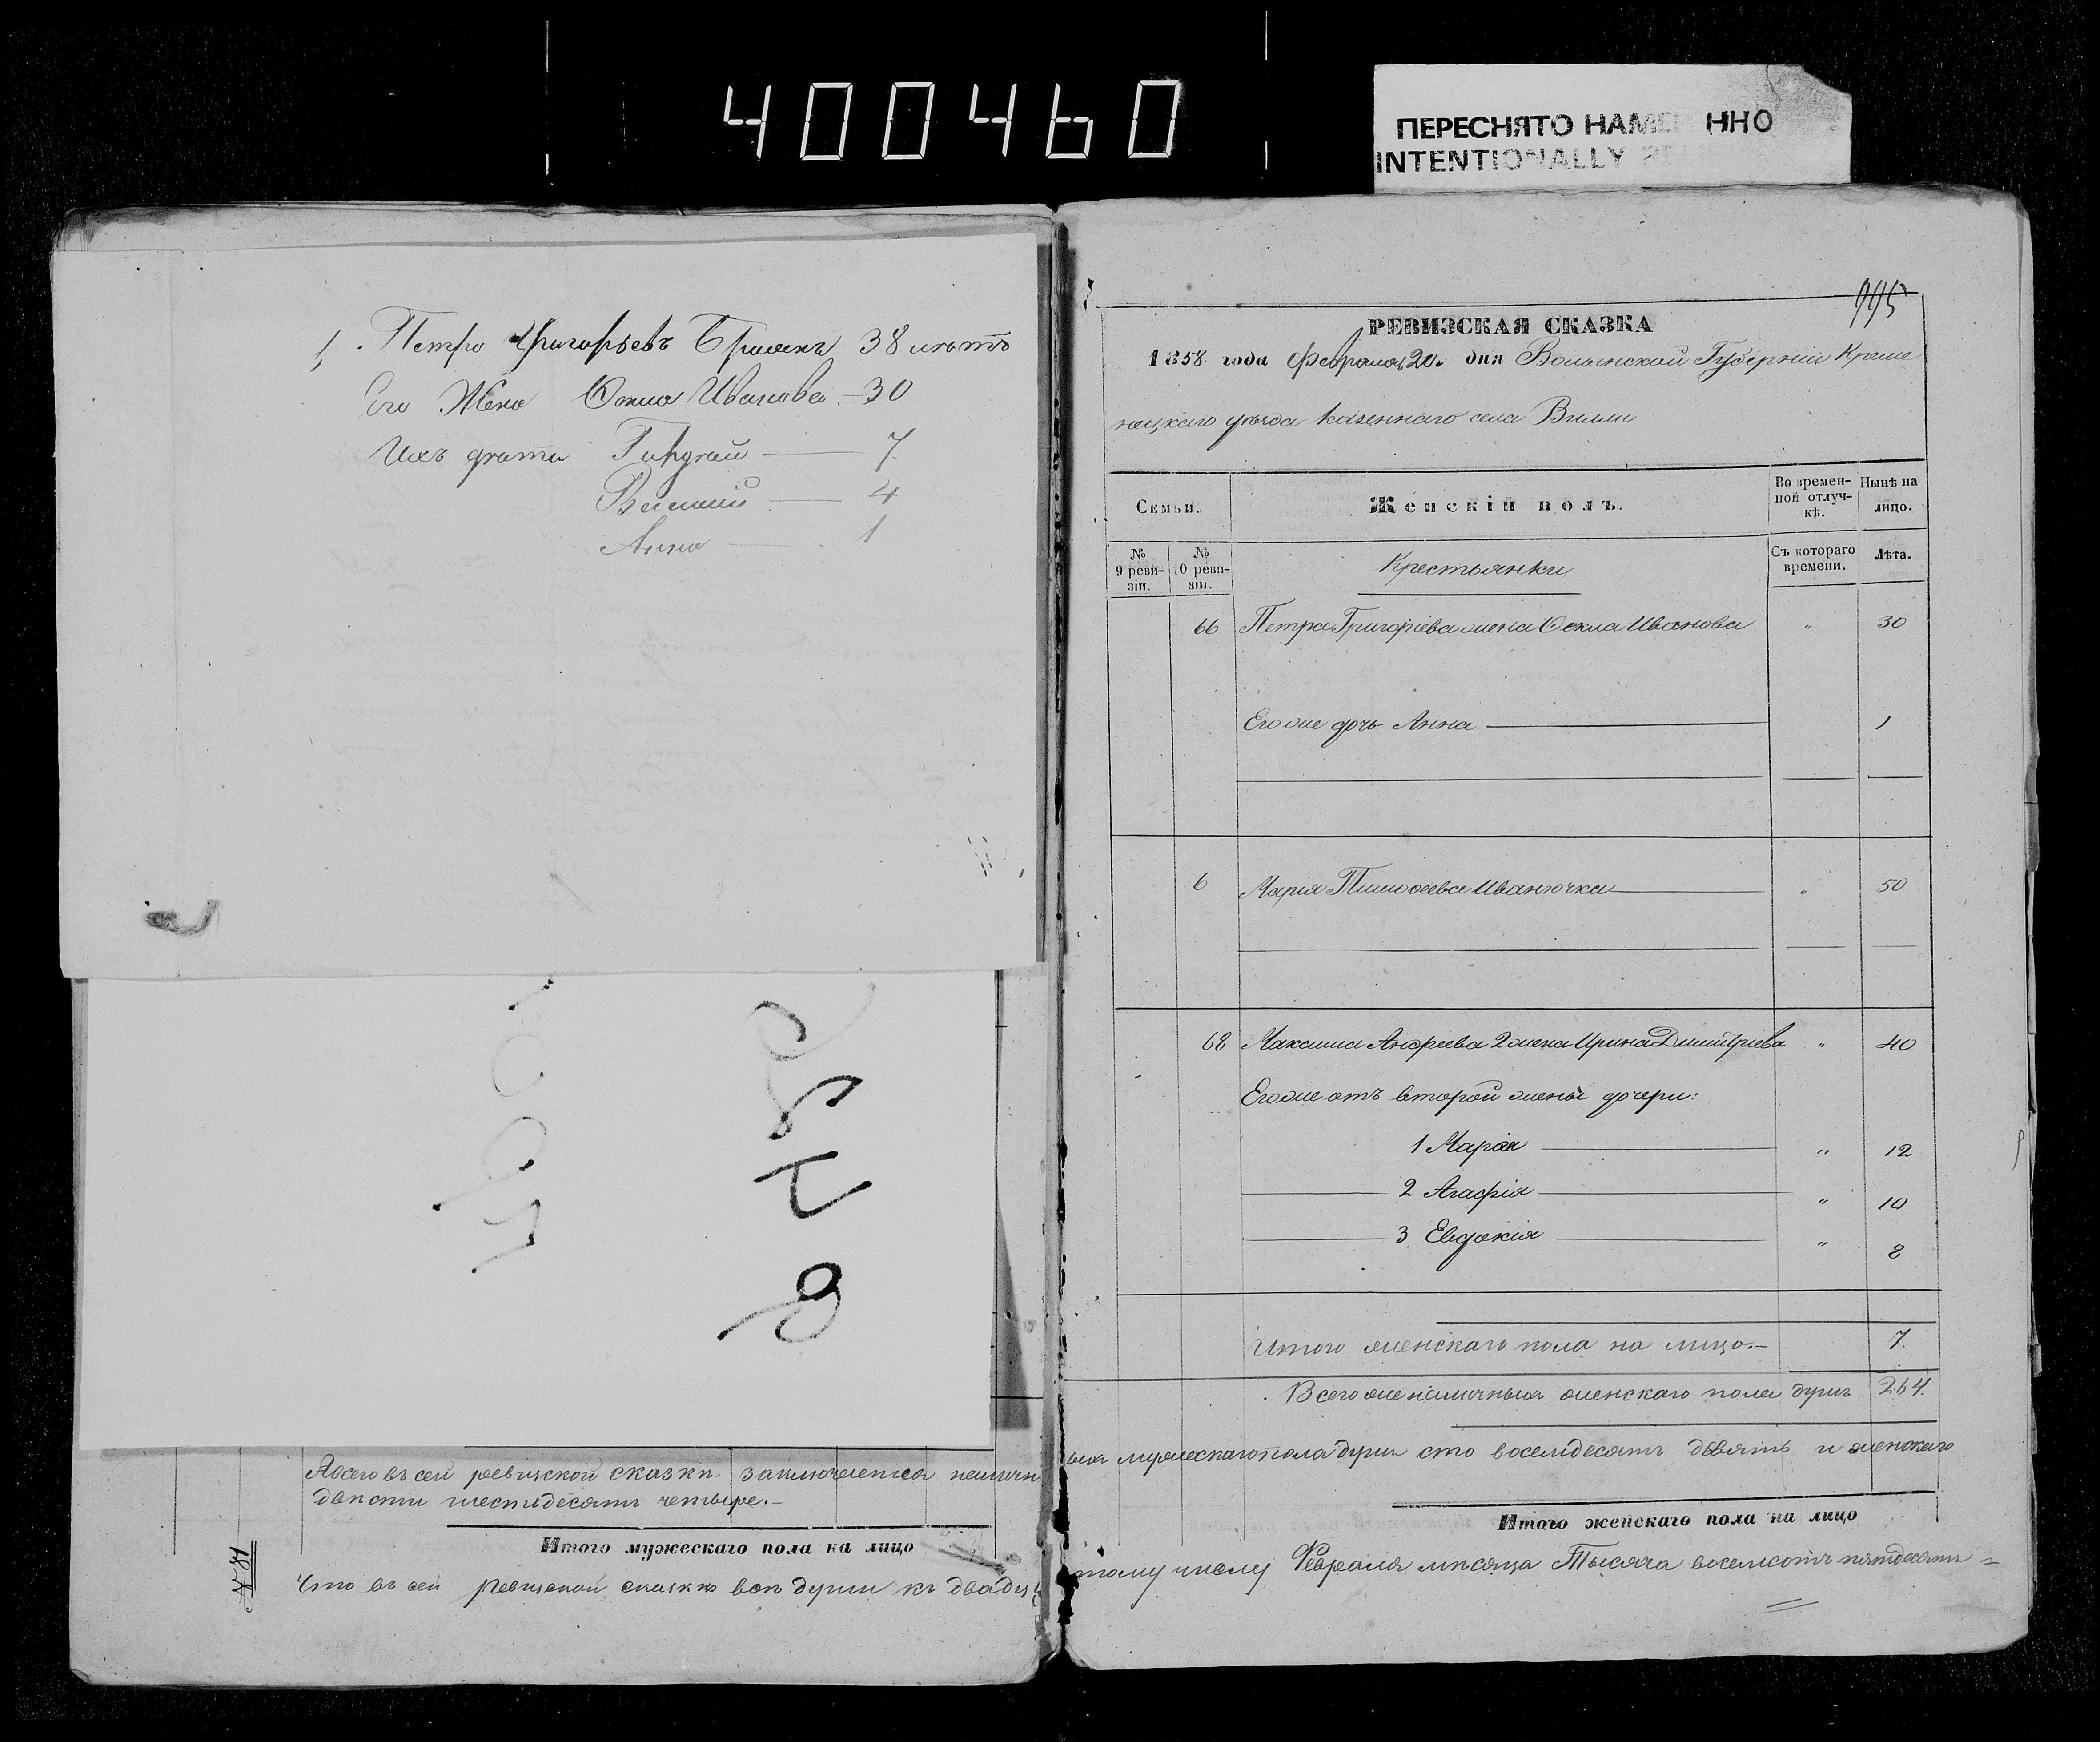 400460
ПЕРЕСНЯТО НАМЕ ННО
INTENTIONALLY RE
1, Петро Григорьевъ 38 лѣтъ
Его Жена Фекла Иванова – 30
Ихъ дѣти 7
4
Анна 1
А всего въ сей ревизской сказкѣ заключается наличн
двѣсти шестьдесятъ четыре.–
Итого мужескаго пола на лицо
Что въ сей ревизской сказкѣ всѣ души къ двадца
995
РЕВИЗСКАЯ СКАЗКА
1858 года Февраля 20. дня Волынской Губерніи Креме
нецкаго уѣзда Казеннаго села Вилии
Семьи. Женскій полъ. Во времен-ной отлуч-кѣ. Нынѣ на лицо.
№ 9 реви-зіи. № 0 реви-зіи. Крестьянки Съ котораго времени. Лѣта.
66 Петра Григоріева жена Фекла Иванова " 30
Его же дочь Анна 1
6 Марія Тимофеева Иванючка " 50
68 Максима Андреева 2 жена Ирина Димитріева " 40
Его же отъ второй жены дочери:
1 Марія " 12
2 Агафія " 10
3 Евдокія " 2
Итого женскаго пола на лицо.– 7.
Всего же наличныхъ женскаго пола душъ 264.
ыхъ мужескаго пола душъ сто восемдесятъ девять и женскаго
Итого женскаго пола на лицо
тому числу Февраля мѣсяца Тысяча восемсотъ пятдесятъ =